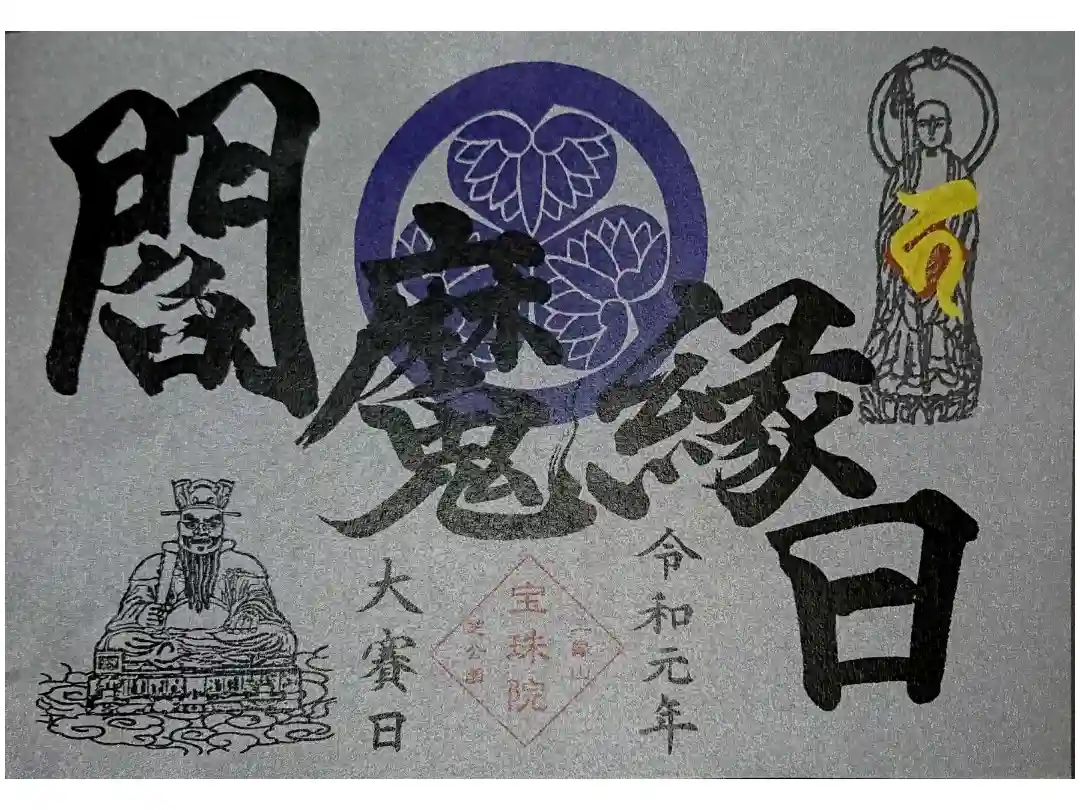 閻魔縁日
令和元年
大賽日
三縁山
宝珠院
芝公園